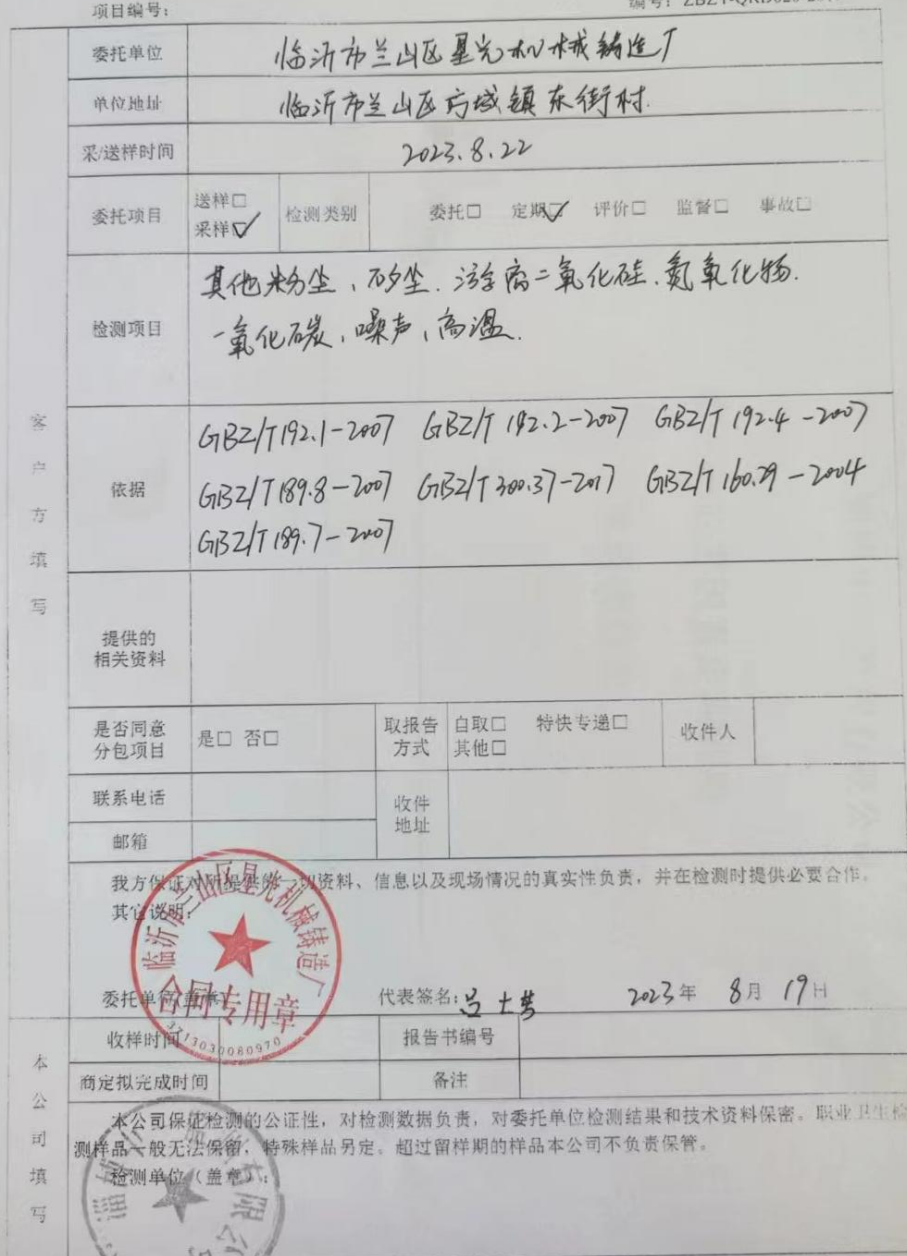 项目编号：
委托单位 临沂市兰山区星光机械铸造厂
单位地址 临沂市兰山区方城镇东街村.
采/送样时间 2023.8.22
委托项目 送样□ 采样☑ 检测类别 委托□ 定期☑ 评价□ 监督□ 事故□
检测项目 其他粉尘、矽尘.游离二氧化硅.氮氧化物.
一氧化碳、噪声、高温.
依据 GBZ/T192.1-2007 GBZ/T192.2-2007 GBZ/T192.4-2007
GBZ/T189.8-2007 GBZ/T300.37-2017 GBZ/T160.29-2004
GBZ/T189.7-2007
客户方填写
提供的
相关资料
是否同意
分包项目 是□ 否□ 取报告
方式 自取□ 特快专递□
其他□ 收件人
联系电话 收件
地址
邮箱
我方保证对所提供的一切资料、信息以及现场情况的真实性负责，并在检测时提供必要合作。
其它说明：
临沂市兰山区星光机械铸造厂
合同专用章
3713030080970
委托单位(盖章) 代表签名： 2023年 8月 19日
收样时间 报告书编号
商定拟完成时间 备注
本公司填写
本公司保证检测的公证性，对检测数据负责，对委托单位检测结果和技术资料保密。职业卫生检
测样品一般无法保留，特殊样品另定。超过留样期的样品本公司不负责保管。
检测单位（盖章）：